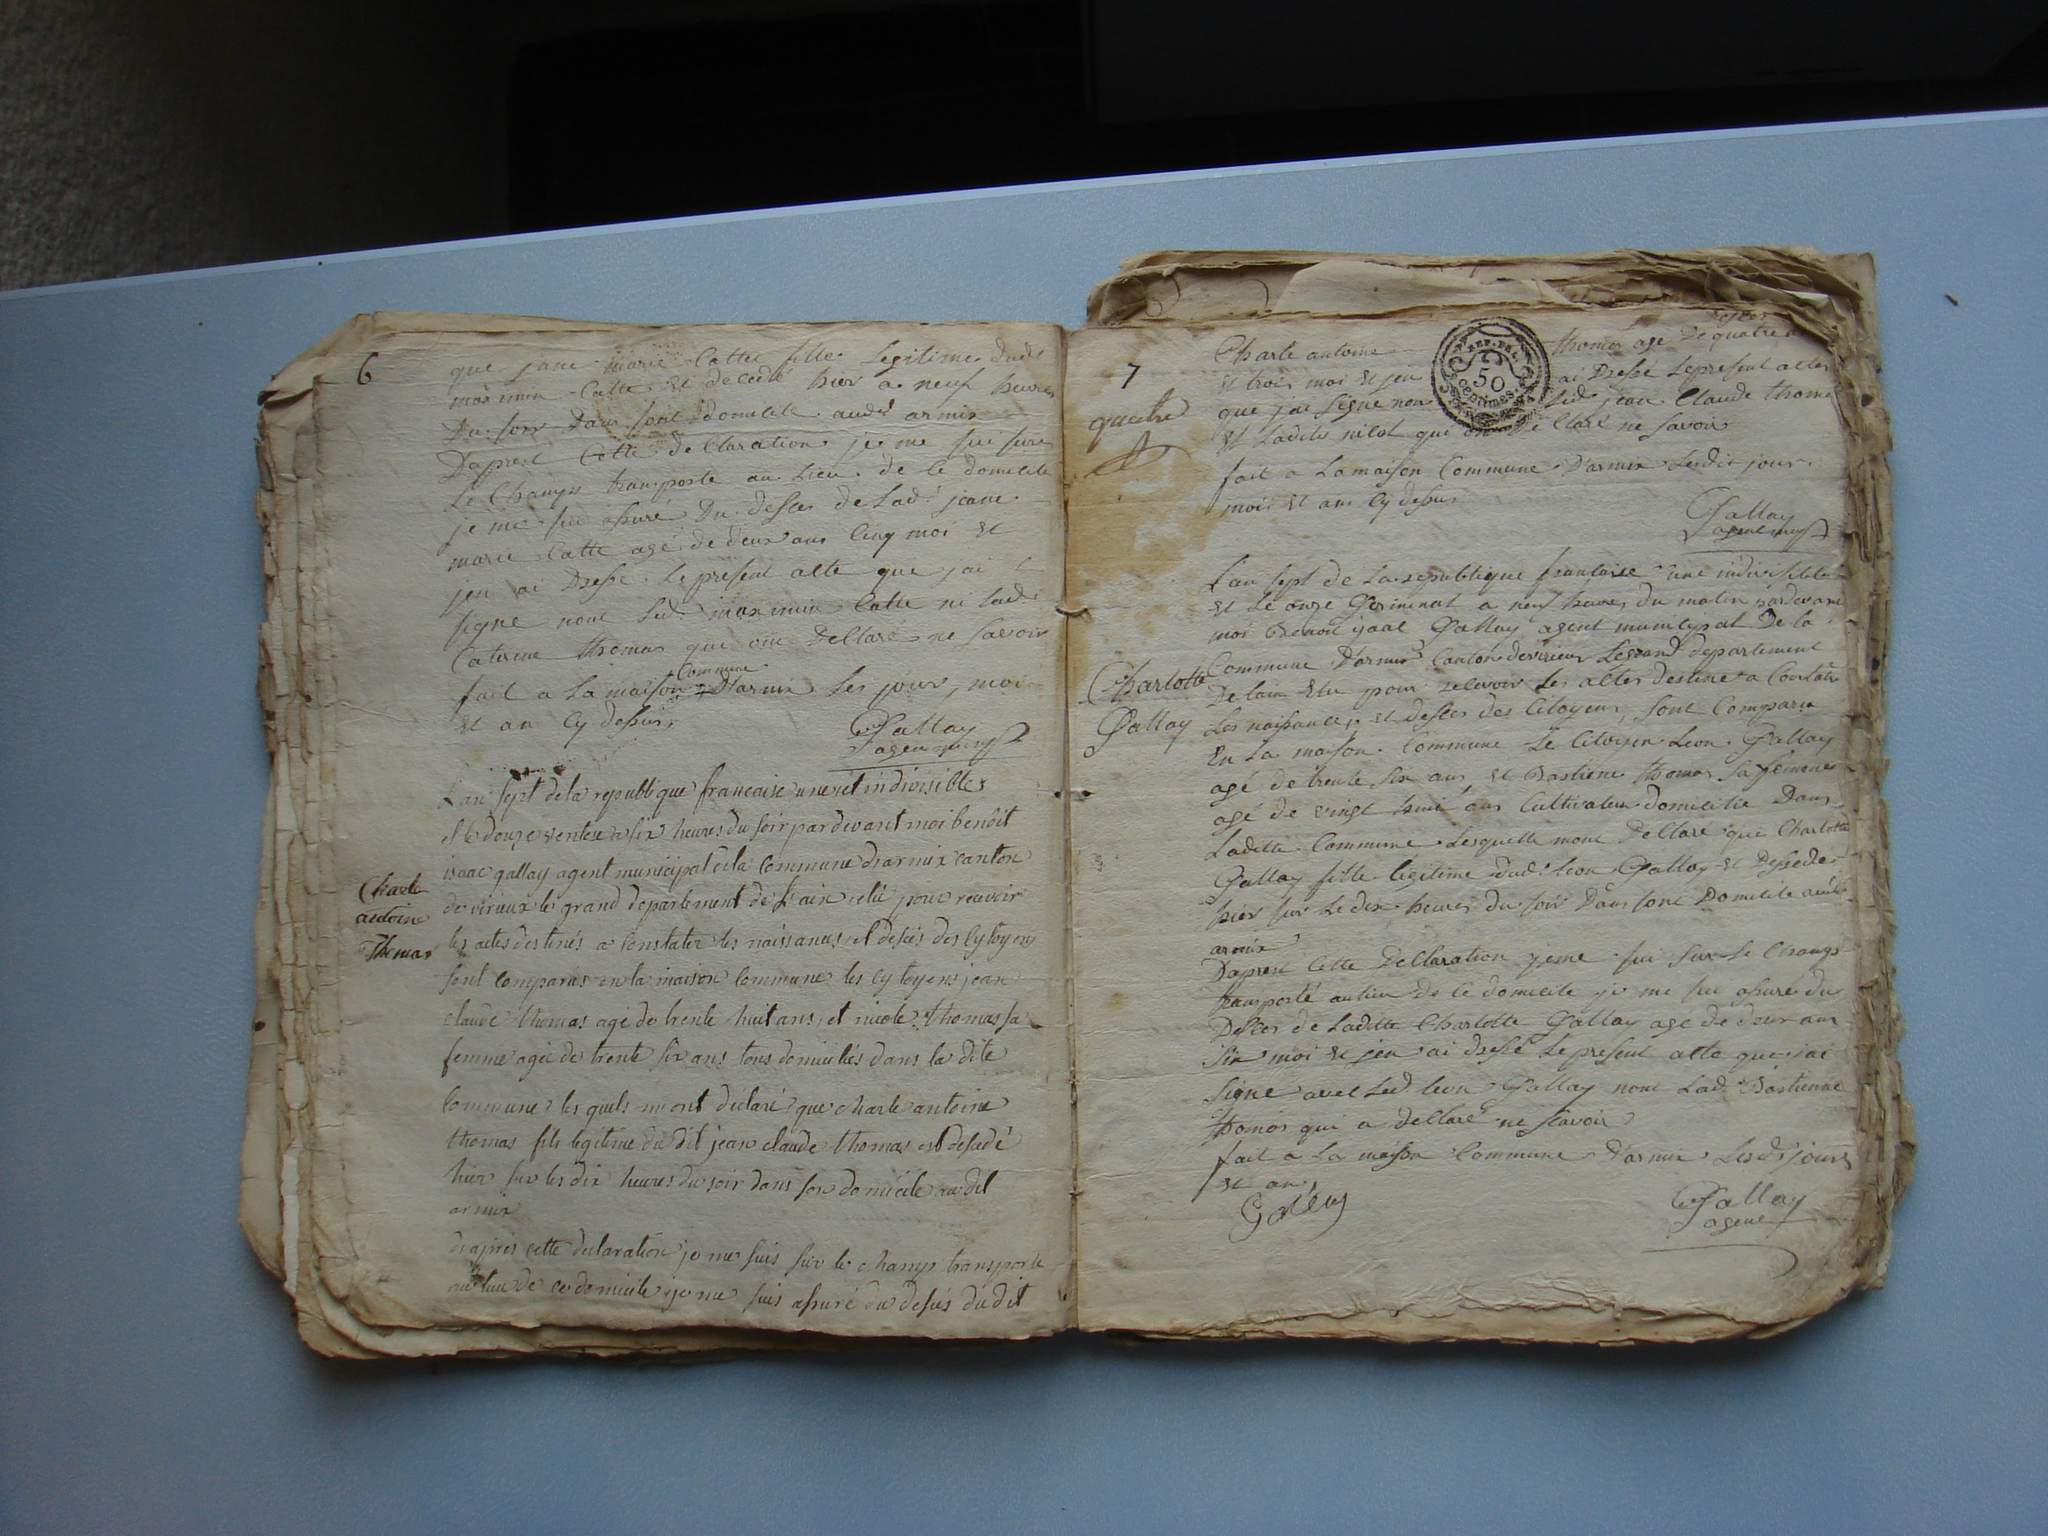 6
que jane marie Catte fille legitime dudt
maximin Catte et decedé hier a neuf heures
Du soir Dans sont domicile audt armix
Daprest Cette declaration je me sui sure
Le Champs transporte au Lieu de le domicile
je me sui assuré Du desces de Ladt jeane
marie Catte agé de deux ans Cinq moi et
jen ai Dressé Le present alte que jai
signe nont Led maximin Catte ni Lad
Caterine thomas que ont Declaré ne savoir
fait a La maison Commune D'armix Les jour, moi
et an Cy dessus
Gallay
agen
L'an sept de la republique francaise une et indivisible
et le douze ventose a six heures du soir pardevant moi benoit
isaac gallay agent municipal de la commune d'armix canton
de virieux le grand departement de l'ain elu pour recevoir
les actes destinés a constater les naissances et desces des cytoyens
sont comparus en la maison commune les cytoyens jean
claude thomas agé de trente huit ans, et nicole thomas sa
femme agée de trente six ans tous domicilies dans la dite
commune les quels m'ont declaré que charle antoine
thomas fils legitime du dit jean claude thomas est desedé
hier sur les dix heures du soir dans son domicile au dit
armix
d'après cette declaration je me suis sur le champ transporte
au lieu de ce domicile je me suis assuré du desces du dit
Charle
antoine
Thomas
7
quatre
Charle antoine thomas agé De quatre
et trois moi et jen ai Dressé Le present alte
que jai signe non Led jean Claude thomas
et Ladite nicol qui on De Claré ne savoir
fait a La maison Commune D'armix Lesdit jour
moi et ans Cy dessus
REP. FRA.
50
centimes
Gallay
agent
L'an sept de La republique francaise une indivisible
et Le onze Germinal a neuf heures du matin pardevant
moi Benoit isaac Gallay agent municipal De la
Commune D'armix Canton de virieux Legrand departement
De lain Elu pour recevoir Les altes destine a Constate
Les naissances et desces des Citoyens, sont Comparu
En La maison Commune Le Citoyen Leon Gallay
agé de trente six ans, et Bastiene thomas sa femme
agé de vingt huit ans Cultivateur domicilie Dans
Ladite Commune Lesquelle mont Declaré que Charlotte
Gallay fille legitime dudt Leon Gallay et dessedee
hier sur Le dix heures du soir Dans sont Domicile audt
armix
Daprest Cette Declaration jeme sui sur Le Champs
transporté au lieu de Ce domicile je me sui assure du
Desces de Laditte Charlotte Gallay age de deux ans
six moi et jen ai dressé Le present alte que jai
signe avec Led leon Gallay nont Lad Bastienne
thomas qui a declaré ne savoir
fait a La maison Commune D'armix Lesdt jours
et an,
Charlotte
Gallay
Gallay
Gallay
agent